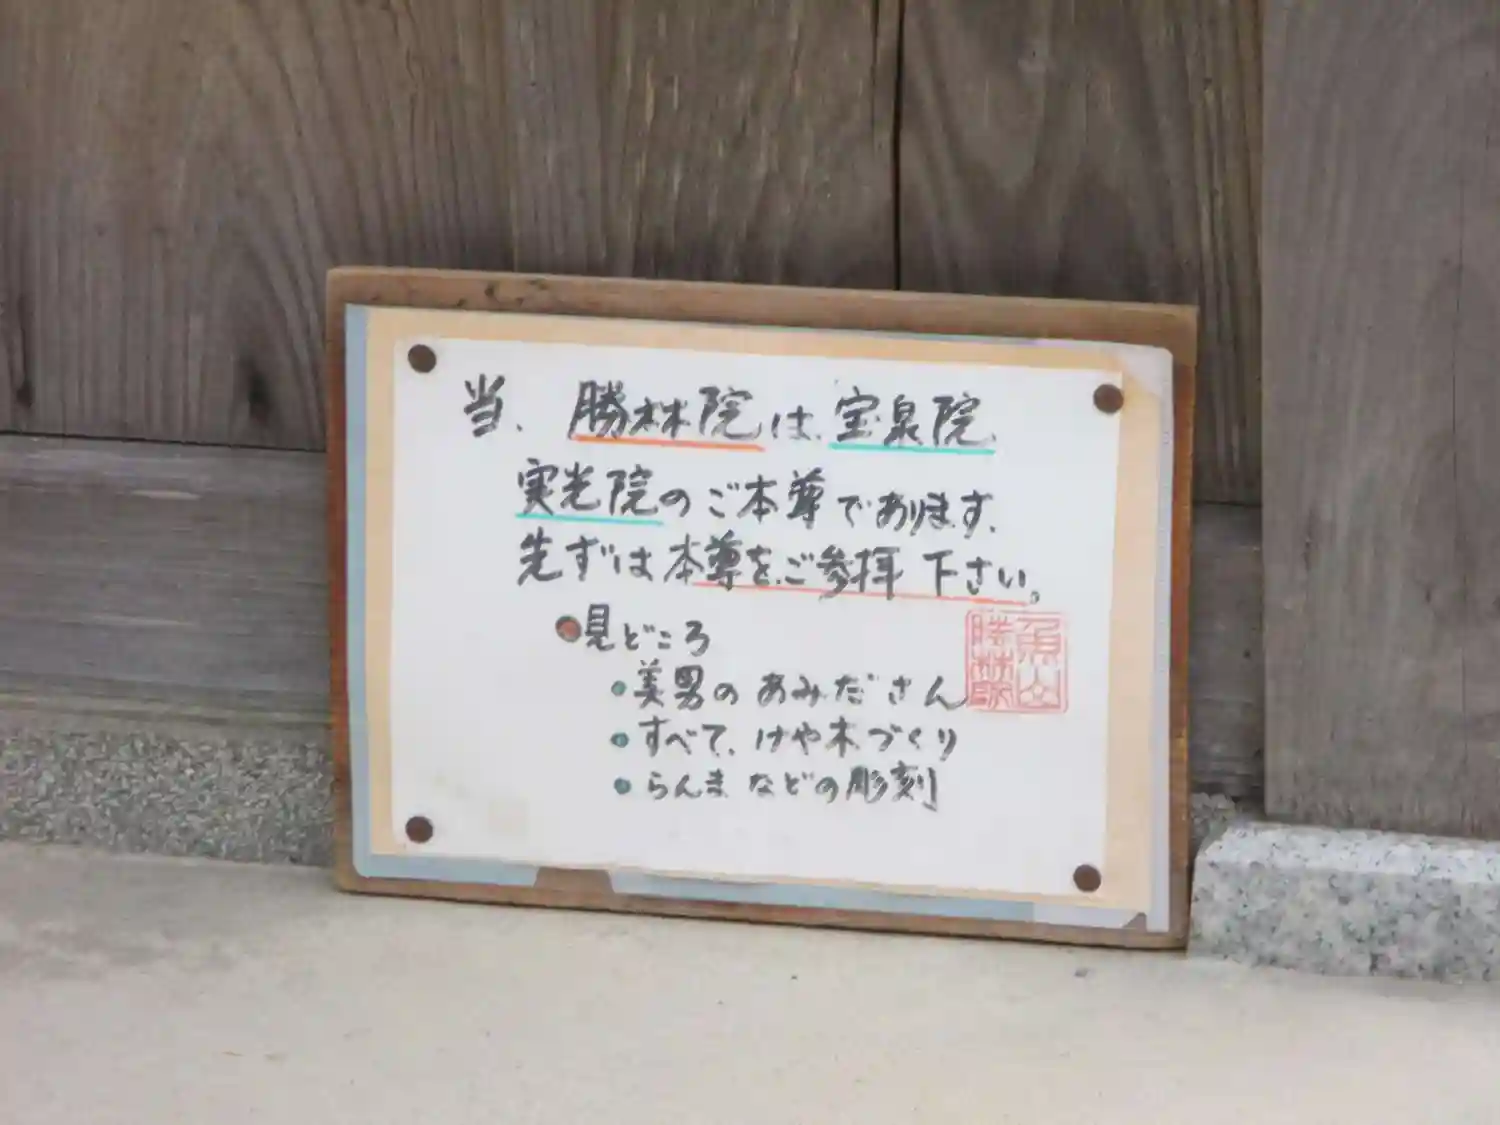 当、勝林院は、宝泉院、
実光院のご本尊であります、
先ずは本尊をご参拝下さい。
●見どころ
・美男のあみださん
・すべて、けや木づくり
・らんまなどの彫刻
魚山
勝林院